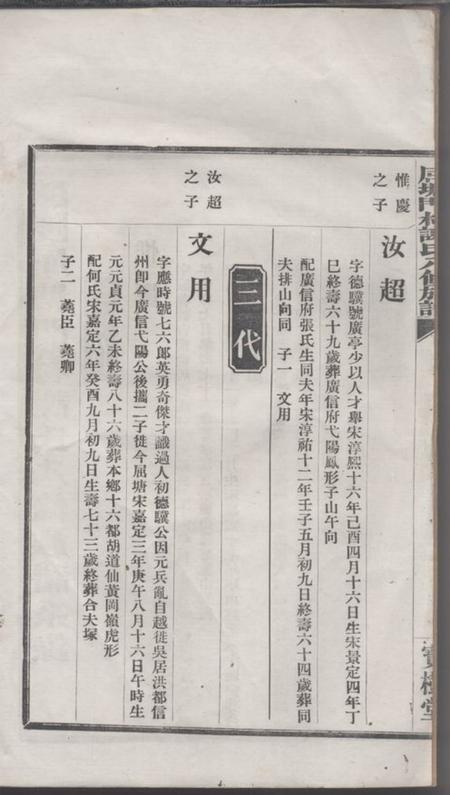 惟慶
之子
汝超
字德驥號廣亭少以人才舉宋淳熙十六年己酉四月十六日生宋景定四年丁
巳終壽六十九歲葬廣信府弋陽鳳形子山午向
配廣信府張氏生同夫年宋淳祐十二年壬子五月初九日終壽六十四歲葬同
夫排山向同 子一 文用
三代
汝超
之子
文用
字應時號七六郎英勇奇傑才識過人初德驥公因元兵亂自越徙吳居洪都信
州卽今廣信弋陽公後攜二子徙今屠塘宋嘉定三年庚午八月十六日午時生
元元貞元年乙未終壽八十六歲葬本鄉十六都胡道仙黃岡嶺虎形
配何氏宋嘉定六年癸酉九月初九日生壽七十三歲終葬合夫塚
子二 蕘臣 蕘卿